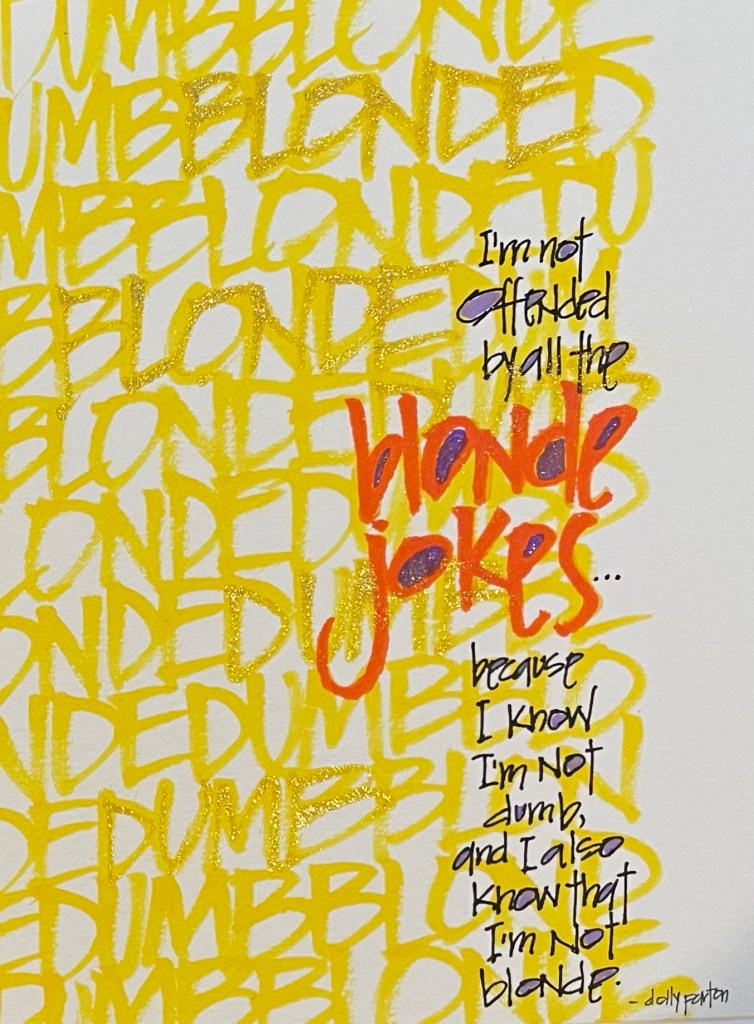 DUMBBLONDE
UMBBLONDED
MBBLONDEDU
BBLONDEDUM
BLONDEDUMB
LONDEDUMBB
ONDEDUMBBL
NDEDUMBBLO
DEDUMBBLON
EDUMBBLOND
DUMBBLONDE
I'm not
offended
by all the
blonde
jokes...
because
I know
I'm Not
dumb,
and I also
know that
I'm Not
blonde.
- dolly parton